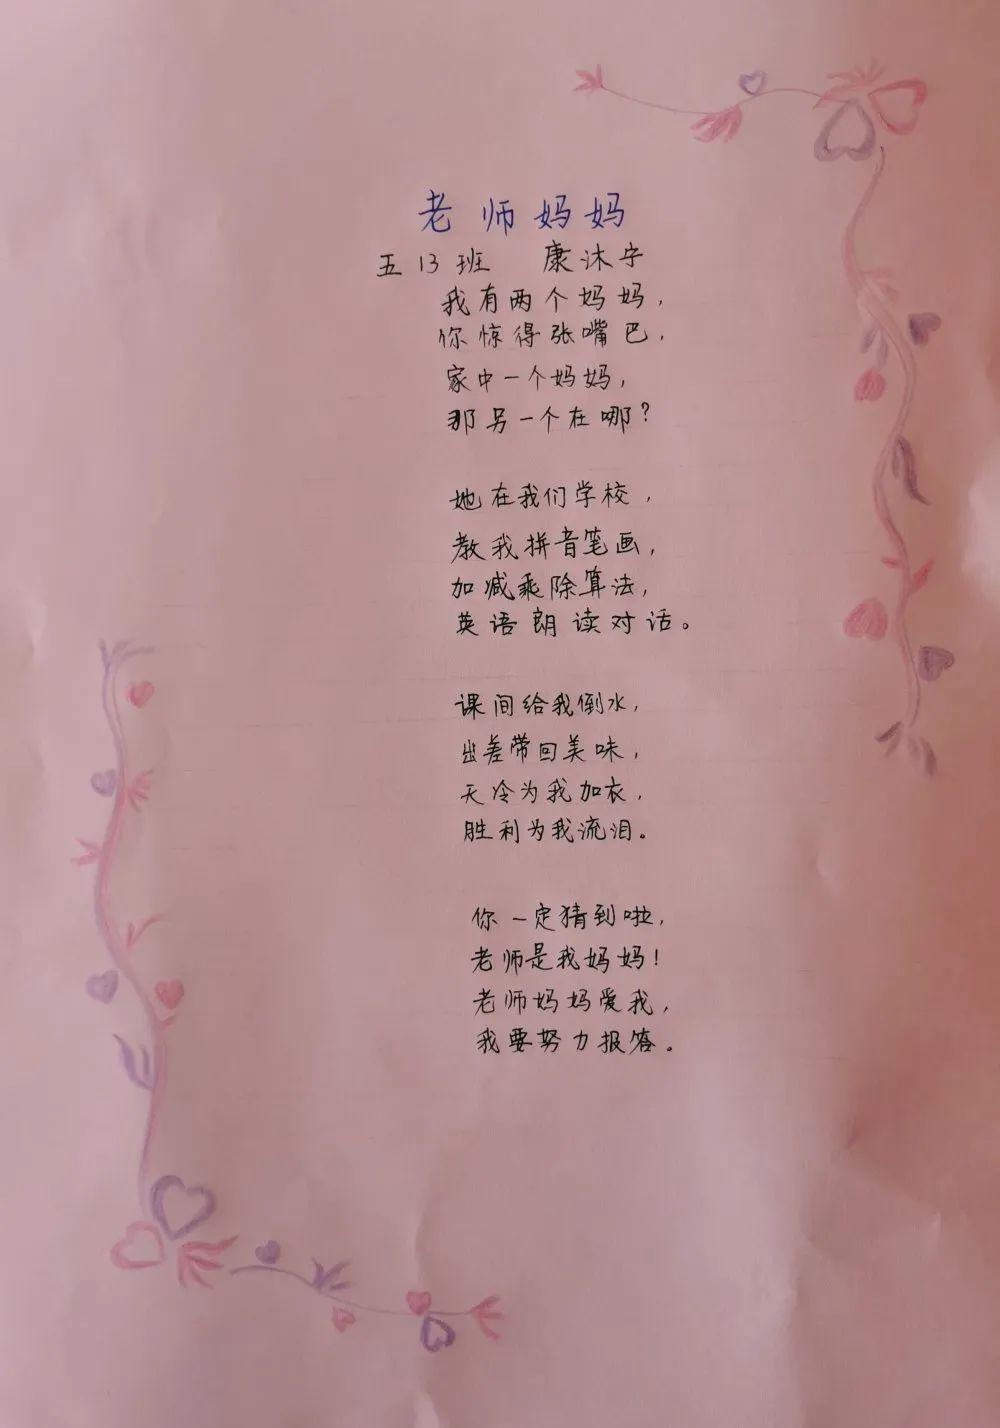 老师妈妈
五13班 康沐宇
我有两个妈妈，
你惊得张嘴巴，
家中一个妈妈，
那另一个在哪？
她在我们学校，
教我拼音笔画，
加减乘除算法，
英语朗读对话。
课间给我倒水，
出差带回美味，
天冷为我加衣，
胜利为我流泪。
你一定猜到啦，
老师是我妈妈！
老师妈妈爱我，
我要努力报答。